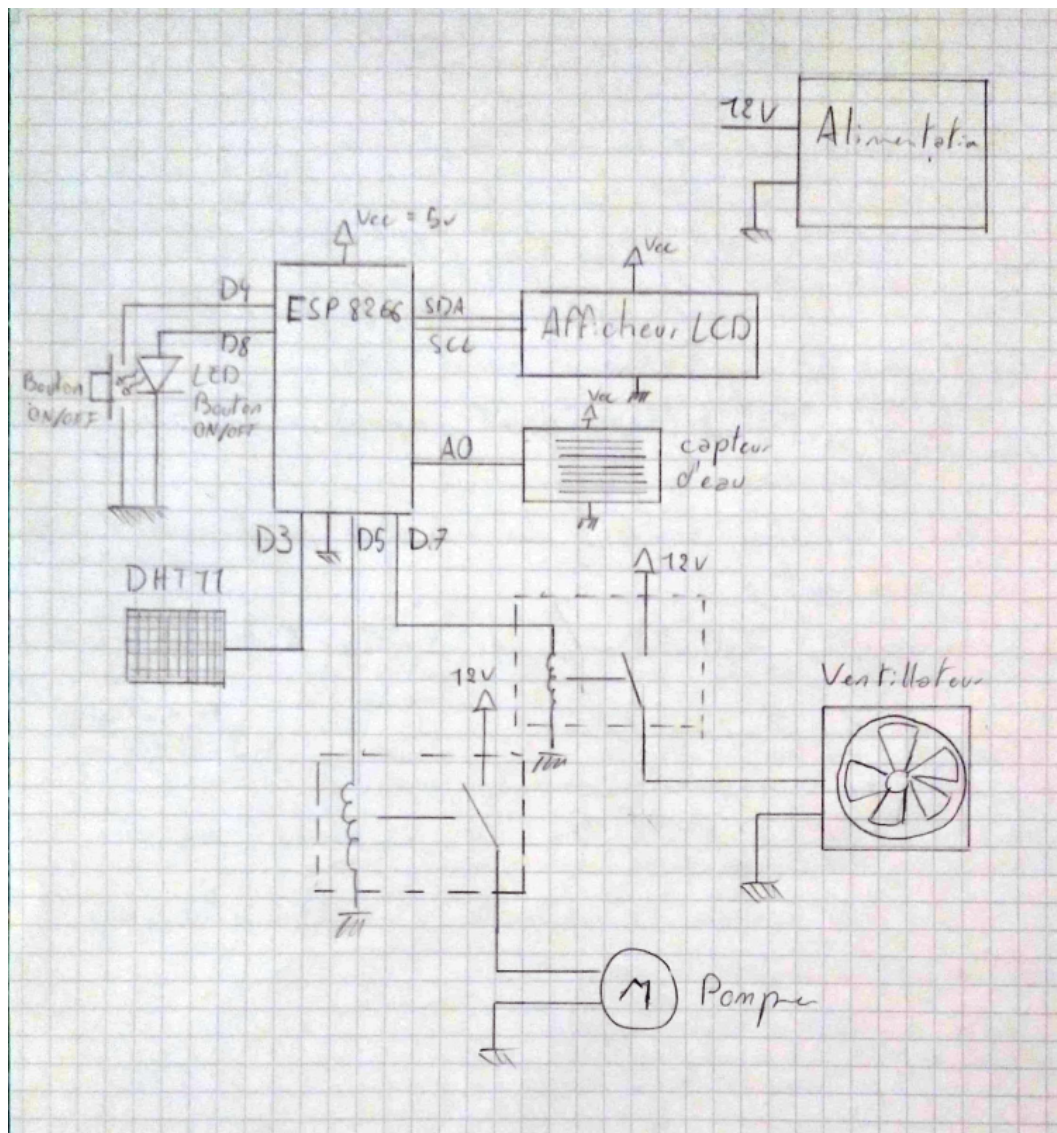 12V
Alimentation
Vcc = 5v
D4
ESP 8266
SDA
SCL
Afficheur LCD
Vcc
D8
LED
Bouton
ON/OFF
Bouton
ON/OFF
Vcc
A0
capteur
d'eau
D3
D5
D7
DHT11
12V
12V
Ventillateur
M
Pompe